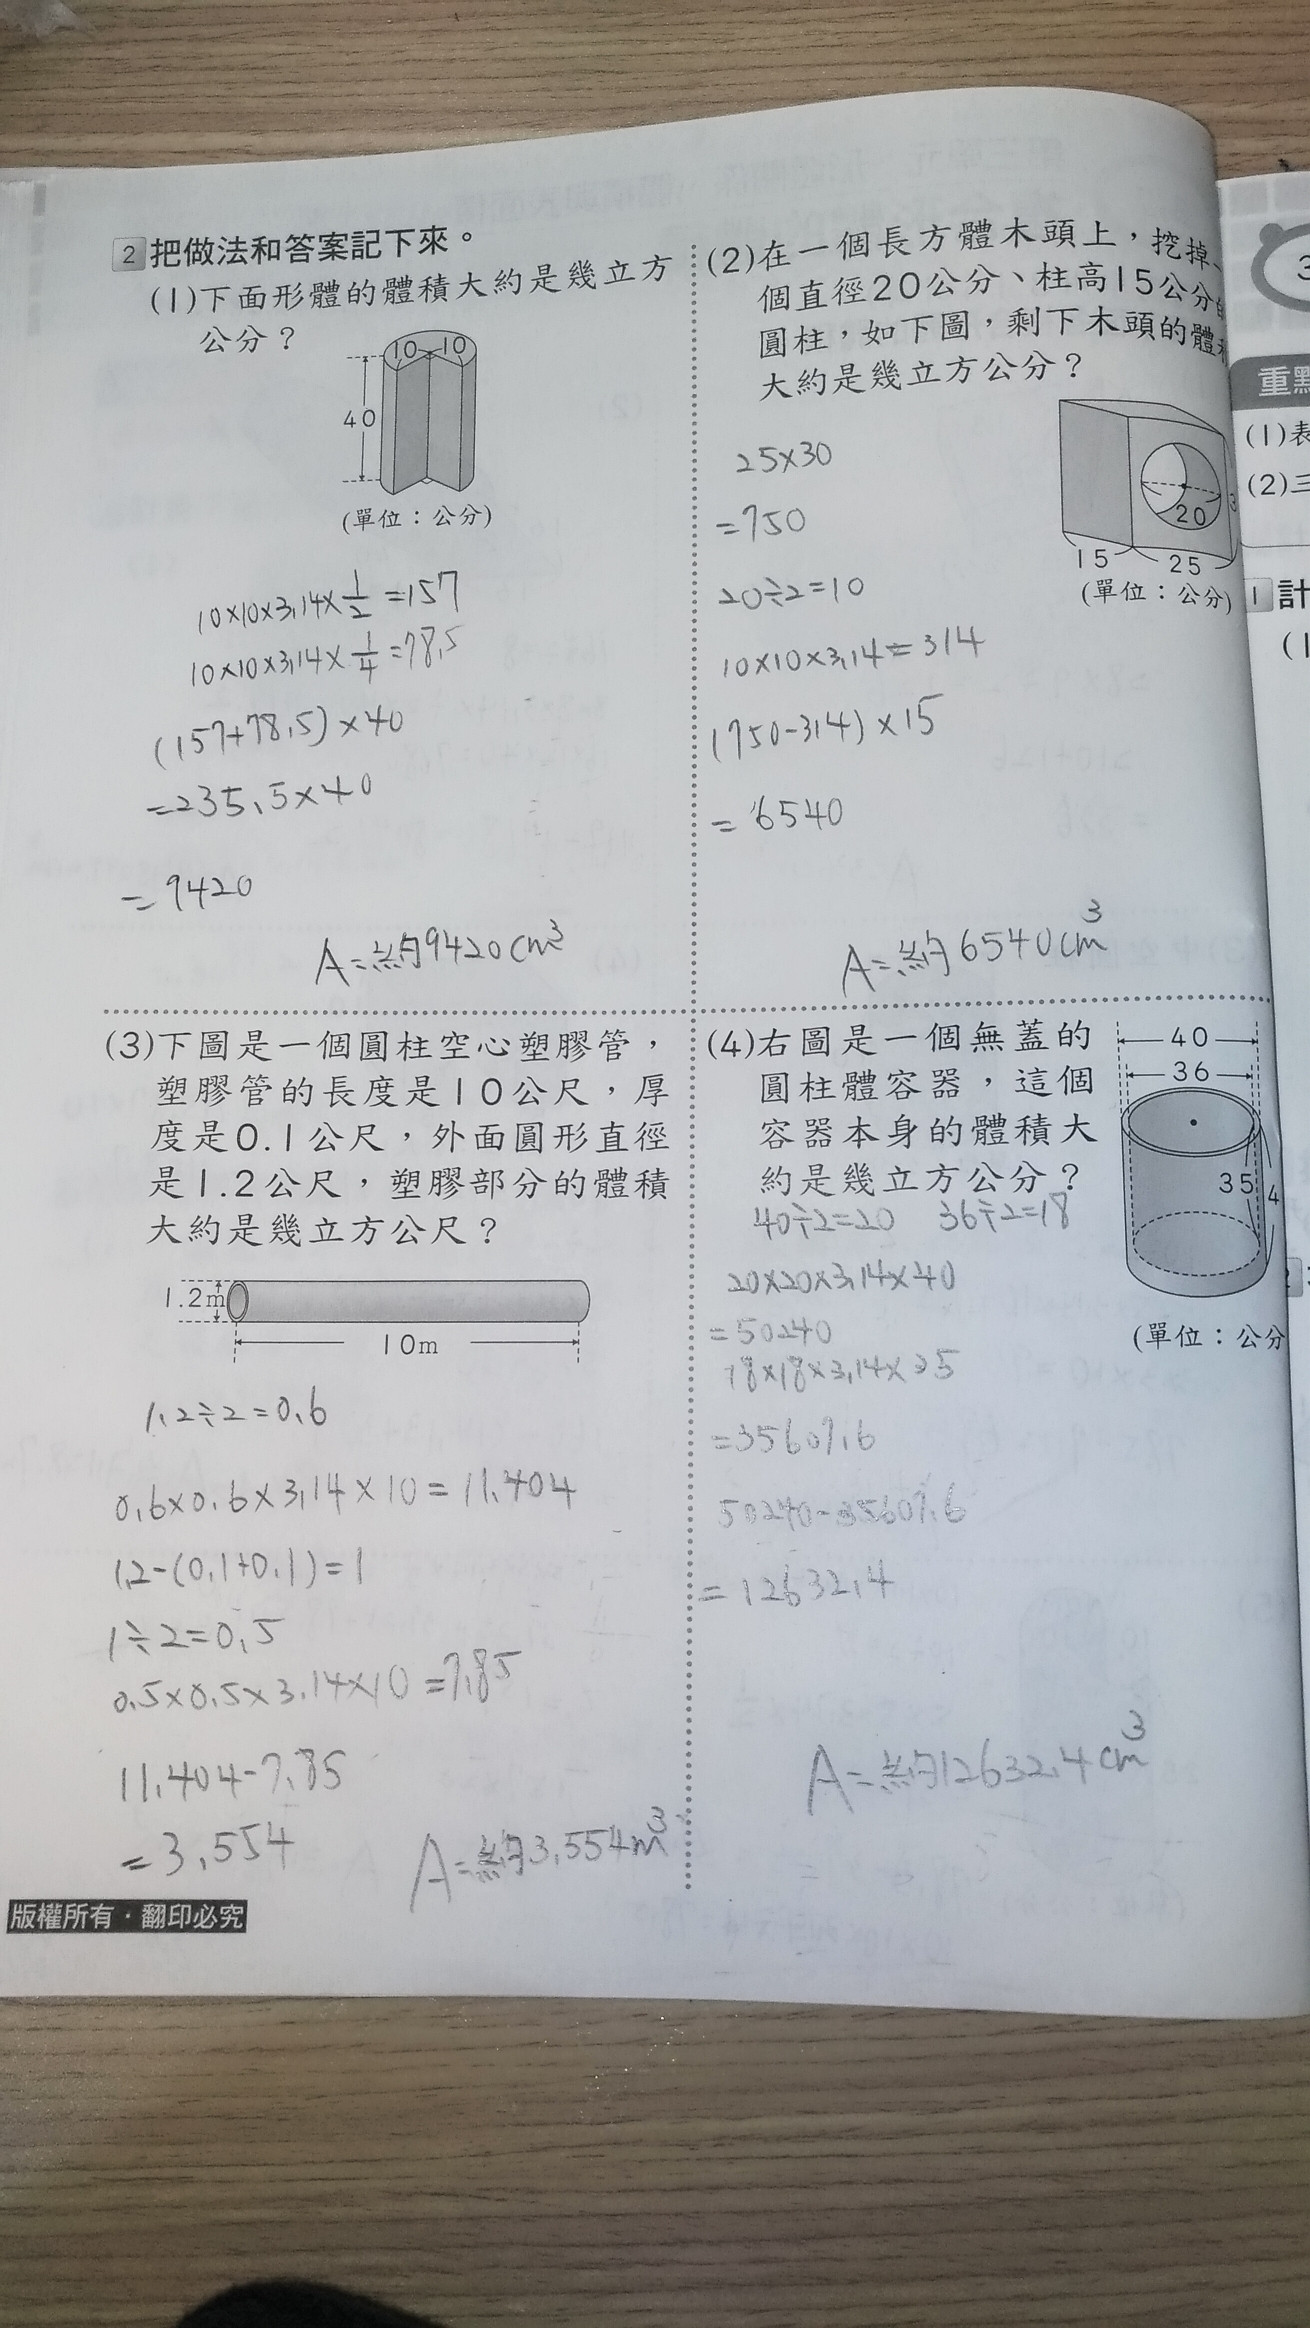 2 把做法和答案記下來。
(1)下面形體的體積大約是幾立方
公分？
10 10
40
(單位：公分)
10×10×3.14×1/2=157
10×10×3.14×1/4=78.5
(157+78.5)×40
=235.5×40
=9420
A=約9420cm³
(2)在一個長方體木頭上，挖掉
個直徑20公分、柱高15公分
圓柱，如下圖，剩下木頭的體
大約是幾立方公分？
20
15 25
(單位：公分)
25×30
=750
20÷2=10
10×10×3.14=314
(750-314)×15
=6540
A=約6540cm³
(3)下圖是一個圓柱空心塑膠管，
塑膠管的長度是10公尺，厚
度是0.1公尺，外面圓形直徑
是1.2公尺，塑膠部分的體積
大約是幾立方公尺？
1.2m
10m
1.2÷2=0.6
0.6×0.6×3.14×10=11.404
1.2-(0.1+0.1)=1
1÷2=0.5
0.5×0.5×3.14×10=7.85
11.404-7.85
=3.554
A=約3.554m³
(4)右圖是一個無蓋的
圓柱體容器，這個
容器本身的體積大
約是幾立方公分？
40
36
35
4
(單位：公分
40÷2=20 36÷2=18
20×20×3.14×40
=50240
18×18×3.14×35
=35607.6
50240-35607.6
=12632.4
A=約12632.4cm³
版權所有・翻印必究
3
重
(1)表
(2)三
1 計
(1